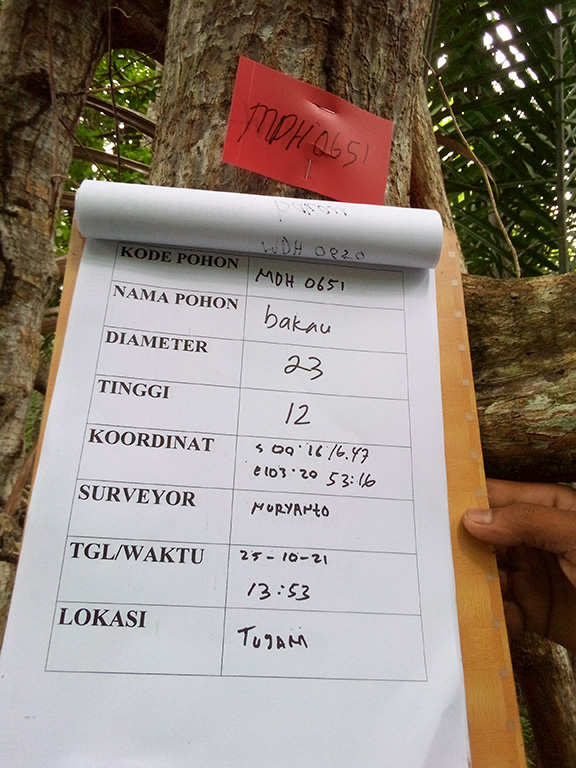 MDH 0651
KODE POHON MDH 0651
NAMA POHON bakau
DIAMETER 23
TINGGI 12
KOORDINAT S 00° 16 16.47
E103° 20 53:16
SURVEYOR MURYANTO
TGL/WAKTU 25-10-21
13:53
LOKASI TUJAM